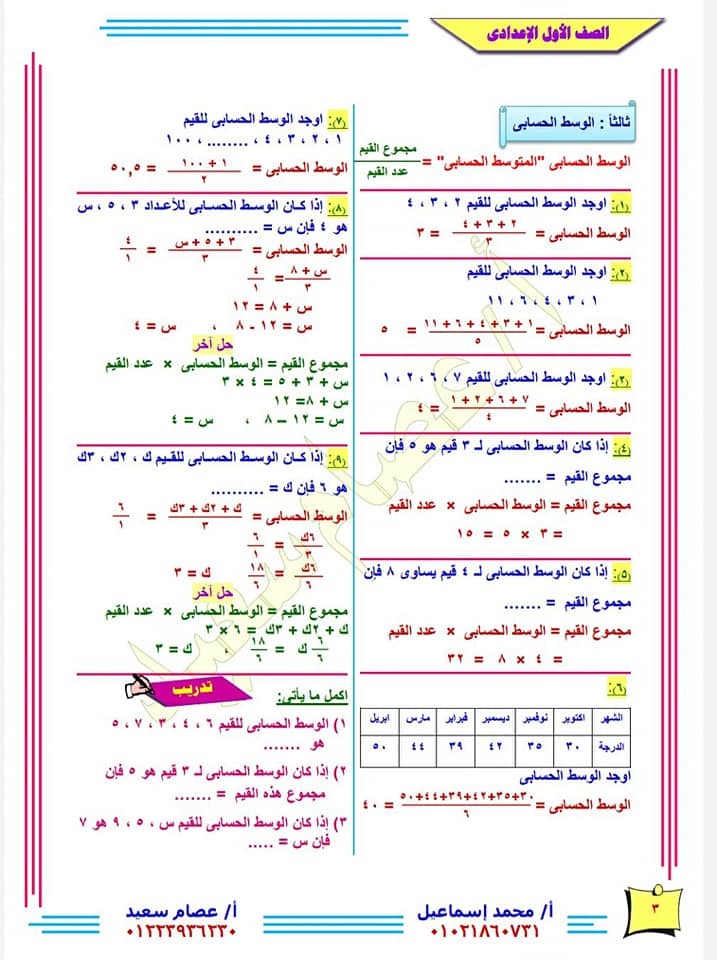 الصف الأول الإعدادى
ثالثاً : الوسط الحسابى
الوسط الحسابى "المتوسط الحسابى" = مجموع القيم / عدد القيم
(١): اوجد الوسط الحسابى للقيم ٢ ، ٣ ، ٤
الوسط الحسابى = ٢ + ٣ + ٤ / ٣ = ٣
(٢): اوجد الوسط الحسابى للقيم
١ ، ٣ ، ٤ ، ٦ ، ١١
الوسط الحسابى = ١ + ٣ + ٤ + ٦ + ١١ / ٥ = ٥
(٣): اوجد الوسط الحسابى للقيم ٧ ، ٦ ، ٢ ، ١
الوسط الحسابى = ٧ + ٦ + ٢ + ١ / ٤ = ٤
(٤): إذا كان الوسط الحسابى لـ ٣ قيم هو ٥ فإن
مجموع القيم = .......
مجموع القيم = الوسط الحسابى × عدد القيم
= ٣ × ٥ = ١٥
(٥): إذا كان الوسط الحسابى لـ ٤ قيم يساوى ٨ فإن
مجموع القيم = .......
مجموع القيم = الوسط الحسابى × عدد القيم
= ٤ × ٨ = ٣٢
(٦):
الشهر اكتوبر نوفمبر ديسمبر فبراير مارس ابريل
الدرجة ٣٠ ٣٥ ٤٢ ٣٩ ٤٤ ٥٠
اوجد الوسط الحسابى
الوسط الحسابى = ٣٠+٣٥+٤٢+٣٩+٤٤+٥٠ / ٦ = ٤٠
(٧): اوجد الوسط الحسابى للقيم
١ ، ٢ ، ٣ ، ٤ ، ........ ، ١٠٠
الوسط الحسابى = ١ + ١٠٠ / ٢ = ٥٠,٥
(٨): إذا كـان الوسـط الحسـابى للأعـداد ٣ ، ٥ ، س
هو ٤ فإن س = ..........
الوسط الحسابى = ٣ + ٥ + س / ٣ = ٤ / ١
س + ٨ / ٣ = ٤ / ١
س + ٨ = ١٢
س = ١٢ - ٨ ، س = ٤
حل أخر
مجموع القيم = الوسط الحسابى × عدد القيم
س + ٣ + ٥ = ٤ × ٣
س + ٨ = ١٢
س = ١٢ – ٨ ، س = ٤
(٩): إذا كـان الوسـط الحسـابى للقـيم ك ، ٢ك ، ٣ك
هو ٦ فإن ك = ..........
الوسط الحسابى = ك + ٢ك + ٣ك / ٣ = ٦ / ١
٦ك / ٣ = ٦ / ١
٦ك / ٦ = ١٨ / ٦ ك = ٣
حل أخر
مجموع القيم = الوسط الحسابى × عدد القيم
ك + ٢ك + ٣ك = ٦ × ٣
٦ / ٦ ك = ١٨ / ٦ ، ك = ٣
تدريب
اكمل ما يأتى:
١) الوسط الحسابى للقيم ٦ ، ٤ ، ٣ ، ٧ ، ٥
هو .......
٢) إذا كان الوسط الحسابى لـ ٣ قيم هو ٥ فإن
مجموع هذه القيم = .......
٣) إذا كان الوسط الحسابى للقيم س ، ٥ ، ٩ هو ٧
فإن س = .....
أ / عصام سعيد
٣
أ/ محمد إسماعيل
٠١٠٢١٨٦٠٧٣١
أ/ عصام سعيد
٠١٢٢٣٩٣٦٢٣٠